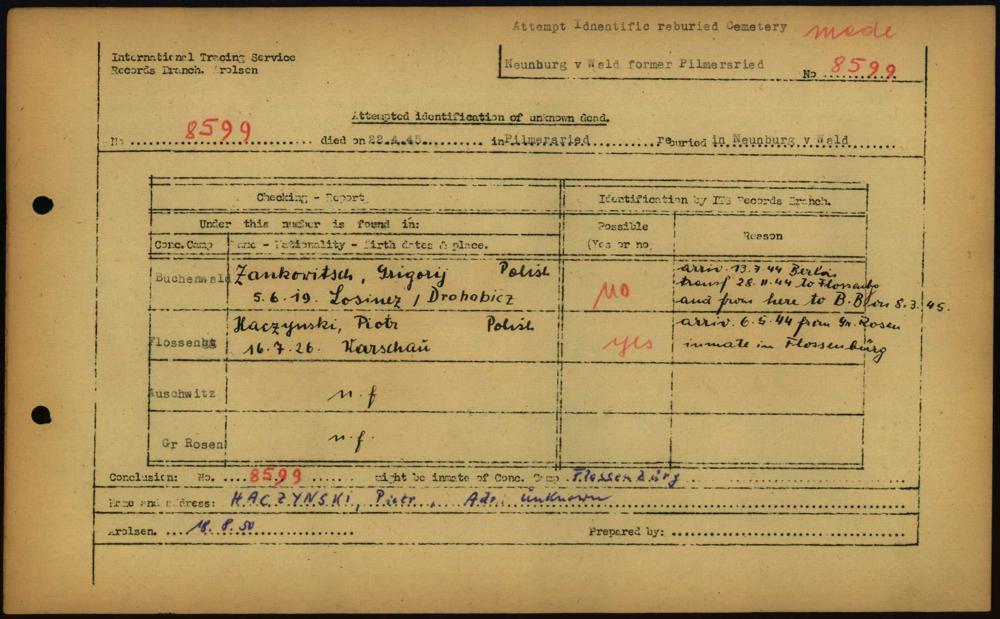 Attempt Idnentific reburied Cemetery made
International Tracing Service
Records Branch. Arolsen
Neunburg v Wald former Pilmersried
No 8599
Attempted identification of unknown dead.
No 8599 died on 22.4.45. in Pilmersried reburied in Neunburg v Wald
Checking - Report
Identification by ITS Records Branch.
Under this number is found in:
Possible
(Yes or no)
Reason
Conc. Camp Name - Nationality - Birth dates & place.
Buchenwald Zankovitsch, Grigorij Polish
5.6.19. Losinez / Drohobicz
no
arriv. 13.7.44 Berlin
transf 28.11.44 to Flossenbg
and from here to B.B. on 8.3.45.
Flossenbg Haczynski, Piotr Polish
16.7.26. Warschau
yes
arriv. 6.5.44 from Gr. Rosen
inmate in Flossenbürg
Auschwitz n.f
Gr Rosen n.f.
Conclusion: No. 8599 might be inmate of Conc. Camp Flossenbürg
Name and address: HACZYNSKI, Piotr, Adr. unknown
Arolsen. 18.8.50 Prepared by: